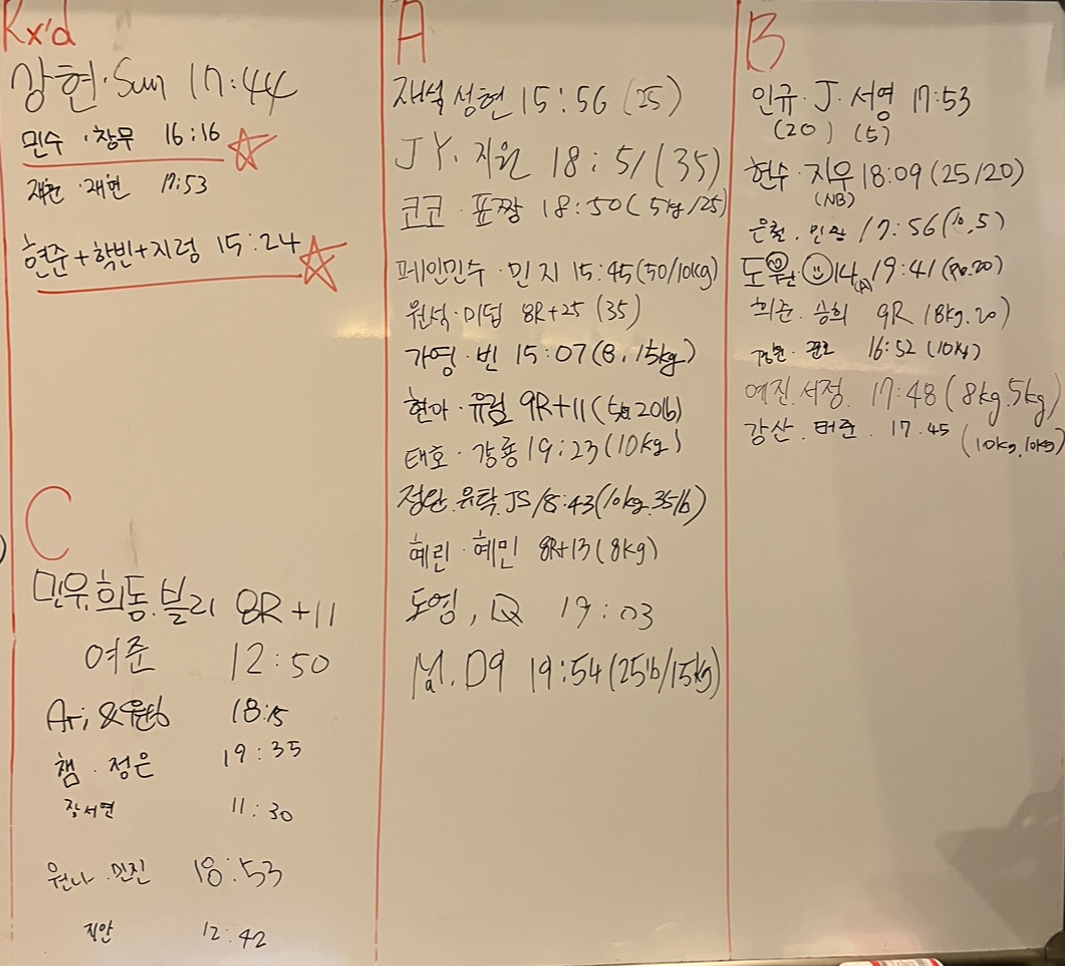 Rx'd
강현·Sun 17:44
민수·창무 16:16
재현 17:53
현준+학빈+지렁 15:24
A
성현 15:56 (25)
JY·지원 18:51 (35)
코코·표짱 18:50 (5kg/25)
페인민수·민지 15:45 (50/10kg)
원석·미덥 8R+25 (35)
가영·빈 15:07 (8, 15kg)
현아· 9R+11 ( 20lb)
태호·강룡 19:23 (10kg)
정완.유탁.JS 18:43 (10kg.35lb)
혜린·혜민 8R+13 (8kg)
도영, Q 19:03
D9 19:54 (25lb/15kg)
B
인규·J·서영 17:53
(20) (5)
현수·지우 18:09 (25/20)
(NB)
17:56 (10.5)
19:41
희준·승희 9R (8kg.20)
16:52 (10kg)
예진.서정. 17:48 (8kg.5kg)
강산. 17.45 (10kg.10kg)
C
민우.희동.블리 8R+11
여준 12:50
Ari & 18:15
챔·정은 19:35
장서연 11:30
원나·민진 18:53
지안 12:42